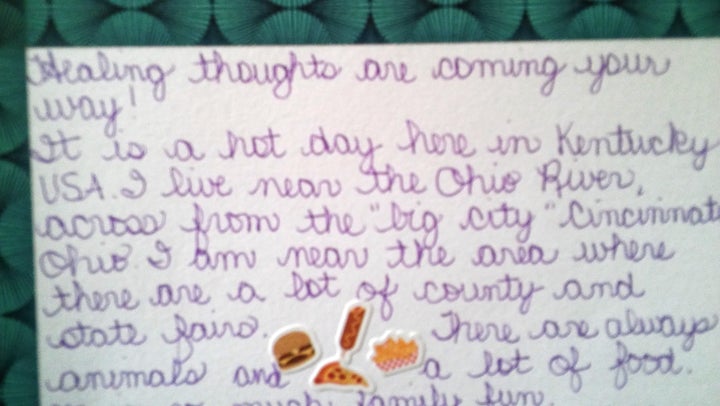 Healing thoughts are coming your
way!
It is a hot day here in Kentucky
USA. I live near the Ohio River,
across from the "big city" Cincinnati
Ohio. I am near the area where
there are a lot of county and
state fairs. There are always
animals and a lot of food.
much family fun.